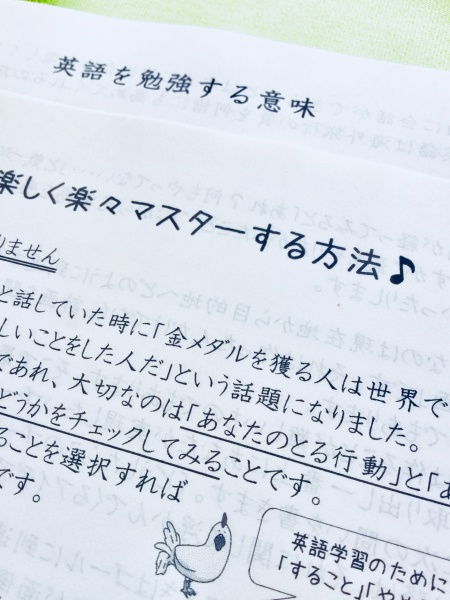 英語を勉強する意味
楽しく楽々マスターする方法♪
りません
と話していた時に「金メダルを獲る人は世界で
しいことをした人だ」という話題になりました。
であれ、大切なのは「あなたのとる行動」と「あ
どうかをチェックしてみることです。
ることを選択すれば
です。
英語学習のために
「すること」や